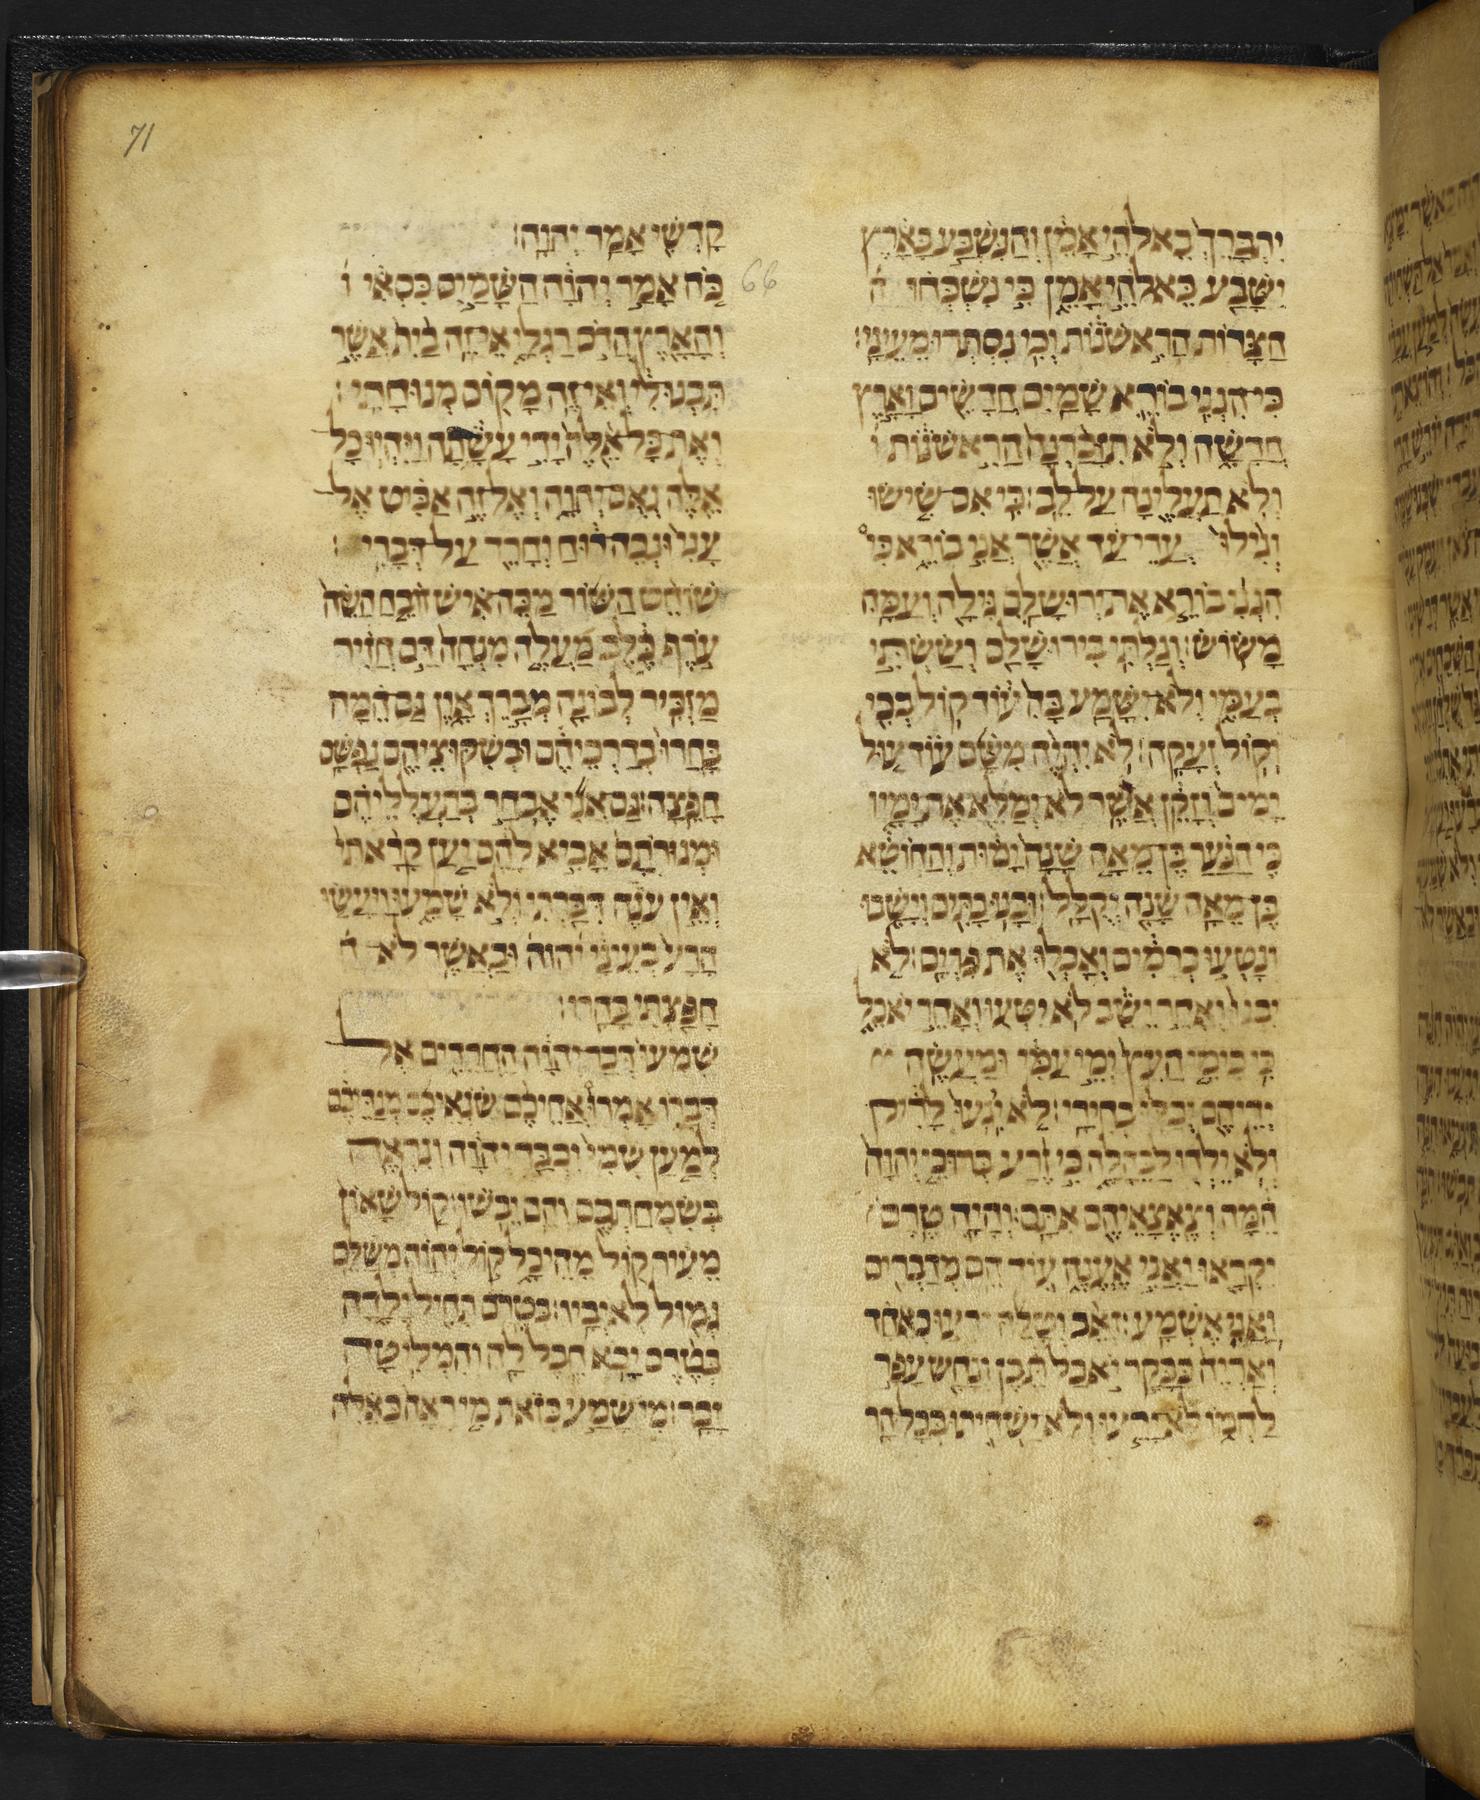 71
יִתְבָּרֵךְ בֵּאלֹהֵי אָמֵן וְהַנִּשְׁבָּע בָּאָרֶץ
יִשָּׁבַע בֵּאלֹהֵי אָמֵן כִּי נִשְׁכְּחוּ
הַצָּרוֹת הָרִאשֹׁנוֹת וְכִי נִסְתְּרוּ מֵעֵינָי׃
כִּי הִנְנִי בוֹרֵא שָׁמַיִם חֲדָשִׁים וָאָרֶץ
חֲדָשָׁה וְלֹא תִזָּכַרְנָה הָרִאשֹׁנוֹת
וְלֹא תַעֲלֶינָה עַל לֵב׃ כִּי אִם שִׂישׂוּ
וְגִילוּ עֲדֵי עַד אֲשֶׁר אֲנִי בוֹרֵא כִּי
הִנְנִי בוֹרֵא אֶת יְרוּשָׁלִַם גִּילָה וְעַמָּהּ
מָשׂוֹשׂ׃ וְגַלְתִּי בִירוּשָׁלִַם וְשַׂשְׂתִּי
בְעַמִּי וְלֹא יִשָּׁמַע בָּהּ עוֹד קוֹל בְּכִי
וְקוֹל זְעָקָה׃ לֹא יִהְיֶה מִשָּׁם עוֹד עוּל
יָמִים וְזָקֵן אֲשֶׁר לֹא יְמַלֵּא אֶת יָמָיו
כִּי הַנַּעַר בֶּן מֵאָה שָׁנָה יָמוּת וְהַחוֹטֶא
בֶּן מֵאָה שָׁנָה יְקֻלָּל׃ וּבָנוּ בָתִּים וְיָשָׁבוּ
וְנָטְעוּ כְרָמִים וְאָכְלוּ אֶת פִּרְיָם׃ לֹא
יִבְנוּ וְאַחֵר יֵשֵׁב לֹא יִטְּעוּ וְאַחֵר יֹאכֵל
כִּי כִימֵי הָעֵץ יְמֵי עַמִּי וּמַעֲשֵׂה
יְדֵיהֶם יְבַלּוּ בְחִירָי׃ לֹא יִגְעוּ לָרִיק
וְלֹא יֵלְדוּ לַבֶּהָלָה כִּי זֶרַע בְּרוּכֵי יְהוָה
הֵמָּה וְצֶאֱצָאֵיהֶם אִתָּם׃ וְהָיָה טֶרֶם
יִקְרָאוּ וַאֲנִי אֶעֱנֶה עוֹד הֵם מְדַבְּרִים
וַאֲנִי אֶשְׁמָע׃ זְאֵב וְטָלֶה יִרְעוּ כְאֶחָד
וְאַרְיֵה כַּבָּקָר יֹאכַל תֶּבֶן וְנָחָשׁ עָפָר
לַחְמוֹ לֹא יָרֵעוּ וְלֹא יַשְׁחִיתוּ בְּכָל הַר
קָדְשִׁי אָמַר יְהוָה׃
66
כֹּה אָמַר יְהוָה הַשָּׁמַיִם כִּסְאִי
וְהָאָרֶץ הֲדֹם רַגְלָי אֵי זֶה בַיִת אֲשֶׁר
תִּבְנוּ לִי וְאֵי זֶה מָקוֹם מְנוּחָתִי׃
וְאֶת כָּל אֵלֶּה יָדִי עָשָׂתָה וַיִּהְיוּ כָל
אֵלֶּה נְאֻם יְהוָה וְאֶל זֶה אַבִּיט אֶל
עָנִי וּנְכֵה רוּחַ וְחָרֵד עַל דְּבָרִי׃
שׁוֹחֵט הַשּׁוֹר מַכֵּה אִישׁ זוֹבֵחַ הַשֶּׂה
עֹרֵף כֶּלֶב מַעֲלֵה מִנְחָה דַּם חֲזִיר
מַזְכִּיר לְבוֹנָה מְבָרֵךְ אָוֶן גַּם הֵמָּה
בָּחֲרוּ בְּדַרְכֵיהֶם וּבְשִׁקּוּצֵיהֶם נַפְשָׁם
חָפֵצָה׃ גַּם אֲנִי אֶבְחַר בְּתַעֲלֻלֵיהֶם
וּמְגוּרֹתָם אָבִיא לָהֶם יַעַן קָרָאתִי
וְאֵין עוֹנֶה דִּבַּרְתִּי וְלֹא שָׁמֵעוּ וַיַּעֲשׂוּ
הָרַע בְּעֵינַי וּבַאֲשֶׁר לֹא
חָפַצְתִּי בָּחָרוּ׃
שִׁמְעוּ דְּבַר יְהוָה הַחֲרֵדִים אֶל
דְּבָרוֹ אָמְרוּ אֲחֵיכֶם שֹׂנְאֵיכֶם מְנַדֵּיכֶם
לְמַעַן שְׁמִי יִכְבַּד יְהוָה וְנִרְאֶה
בְשִׂמְחַתְכֶם וְהֵם יֵבֹשׁוּ׃ קוֹל שָׁאוֹן
מֵעִיר קוֹל מֵהֵיכָל קוֹל יְהוָה מְשַׁלֵּם
גְּמוּל לְאֹיְבָיו׃ בְּטֶרֶם תָּחִיל יָלָדָה
בְּטֶרֶם יָבוֹא חֵבֶל לָהּ וְהִמְלִיטָה
זָכָר׃ מִי שָׁמַע כָּזֹאת מִי רָאָה כָּאֵלֶּה